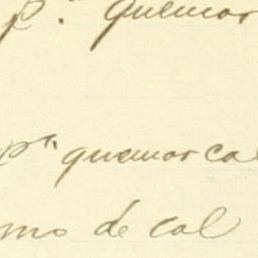 pª. quemar
pª quemar cal
mo de cal